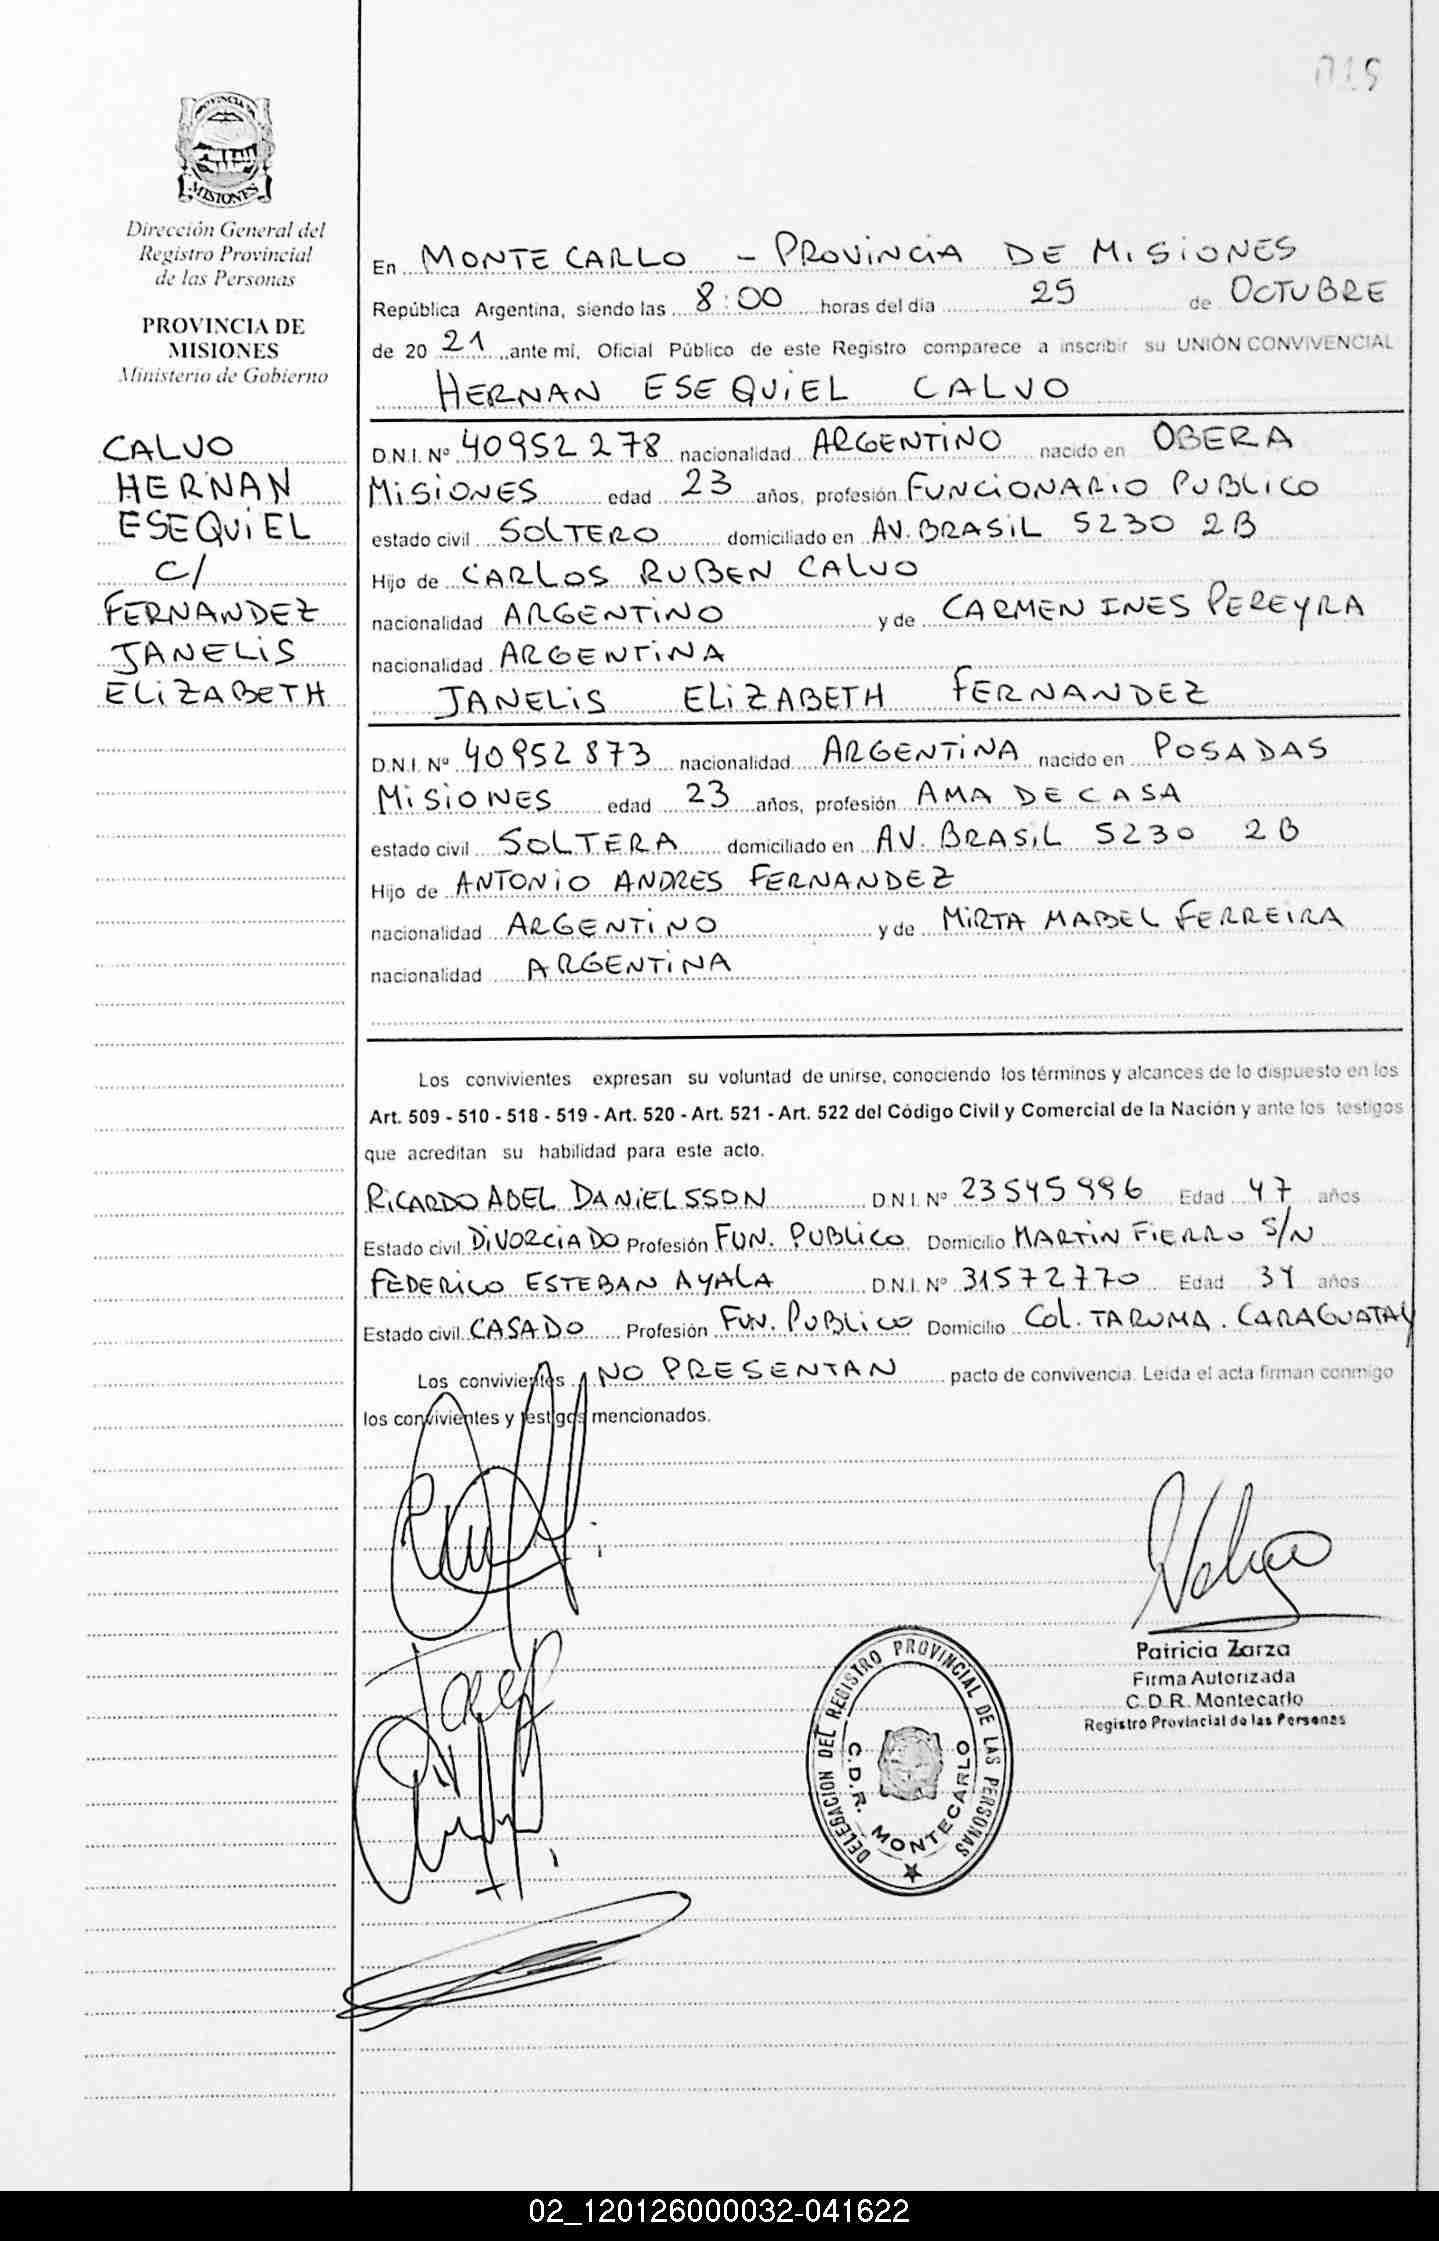 015
PROVINCIA
MISIONES
Dirección General del
Registro Provincial
de las Personas
PROVINCIA DE
MISIONES
Ministerio de Gobierno
CALVO
HERNAN
ESEQUIEL
C/
FERNANDEZ
JANELIS
ELIZABETH
En MONTECARLO - PROVINCIA DE MISIONES
República Argentina, siendo las 8:00 horas del día 25 de OCTUBRE
de 20 21 ante mí, Oficial Público de este Registro comparece a inscribir su UNIÓN CONVIVENCIAL
HERNAN ESEQUIEL CALVO
D.N.I. Nº 40952278 nacionalidad ARGENTINO nacido en OBERA
MISIONES edad 23 años, profesión FUNCIONARIO PUBLICO
estado civil SOLTERO domiciliado en AV. BRASIL 5230 2B
Hijo de CARLOS RUBEN CALVO
nacionalidad ARGENTINO y de CARMEN INES PEREYRA
nacionalidad ARGENTINA
JANELIS ELIZABETH FERNANDEZ
D.N.I. Nº 40952873 nacionalidad ARGENTINA nacido en POSADAS
MISIONES edad 23 años, profesión AMA DE CASA
estado civil SOLTERA domiciliado en AV. BRASIL 5230 2B
Hijo de ANTONIO ANDRES FERNANDEZ
nacionalidad ARGENTINO y de MIRTA MABEL FERREIRA
nacionalidad ARGENTINA
Los convivientes expresan su voluntad de unirse, conociendo los términos y alcances de lo dispuesto en los
Art. 509 - 510 - 518 - 519 - Art. 520 - Art. 521 - Art. 522 del Código Civil y Comercial de la Nación y ante los testigos
que acreditan su habilidad para este acto.
RICARDO ABEL DANIELSSON D.N.I. Nº 23545996 Edad 47 años
Estado civil DIVORCIADO Profesión FUN. PUBLICO Domicilio MARTIN FIERRO S/N
FEDERICO ESTEBAN AYALA D.N.I. Nº 31572770 Edad 34 años
Estado civil CASADO Profesión FUN. PUBLICO Domicilio COL. TARUMA. CARAGUATAY
Los convivientes NO PRESENTAN pacto de convivencia. Leída el acta firman conmigo
los convivientes y testigos mencionados.
Patricia Zarza
Firma Autorizada
C.D.R. Montecarlo
Registro Provincial de las Personas
DELEGACION DEL REGISTRO PROVINCIAL DE LAS PERSONAS
C.D.R. MONTECARLO
02_120126000032-041622